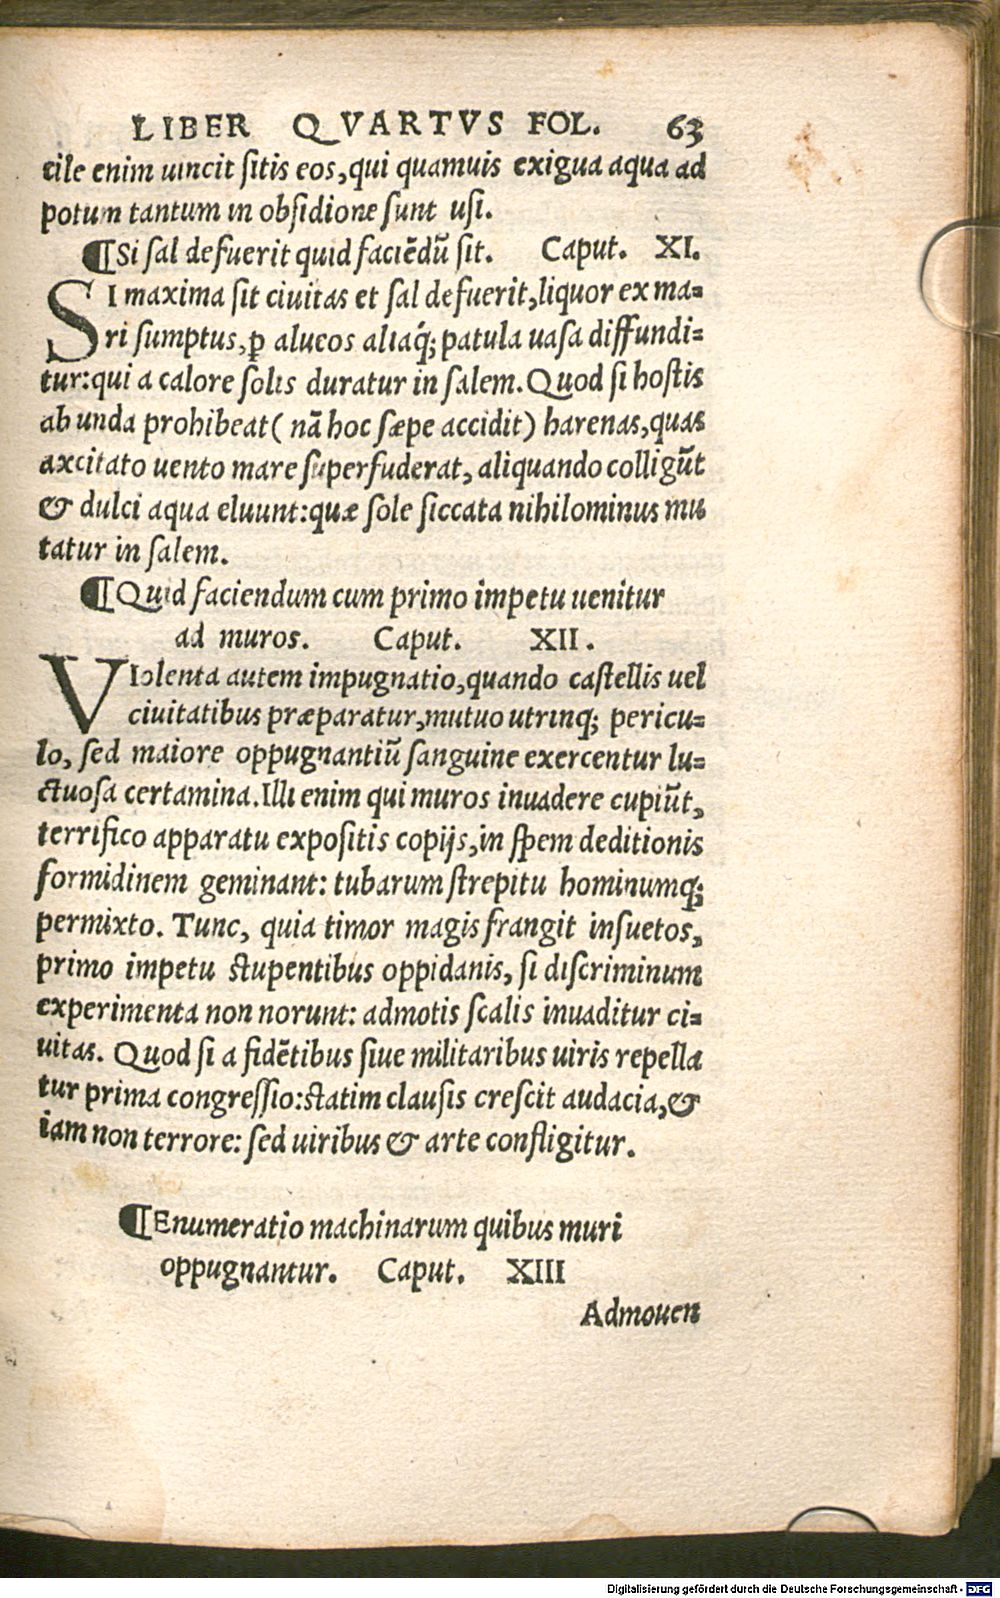 LIBER QVARTVS FOL. 63
cile enim uincit sitis eos, qui quamuis exigua aqua ad
potum tantum in obsidione sunt usi.
¶Si sal defuerit quid faciẽdũ sit. Caput. XI.
SI maxima sit ciuitas et sal defuerit, liquor ex ma=
ri sumptus, ꝑ alueos aliaq́; patula uasa diffundi=
tur: qui a calore solis duratur in salem. Quod si hostis
ab unda prohibeat ( nã hoc sæpe accidit ) harenas, quas
axcitato uento mare superfuderat, aliquando colligũt
& dulci aqua eluunt: quæ sole siccata nihilominus mu
tatur in salem.
¶Quid faciendum cum primo impetu uenitur
ad muros. Caput. XII.
VIolenta autem impugnatio, quando castellis uel
ciuitatibus præparatur, mutuo utrinq; pericu=
lo, sed maiore oppugnantiũ sanguine exercentur lu=
ctuosa certamina. Illi enim qui muros inuadere cupiũt,
terrifico apparatu expositis copijs, in spem deditionis
formidinem geminant: tubarum strepitu hominumq;
permixto. Tunc, quia timor magis frangit insuetos,
primo impetu stupentibus oppidanis, si discriminum
experimenta non norunt: admotis scalis inuaditur ci=
uitas. Quod si a fidẽtibus siue militaribus uiris repella
tur prima congressio: statim clausis crescit audacia, &
iam non terrore: sed uiribus & arte confligitur.
¶Enumeratio machinarum quibus muri
oppugnantur. Caput. XIII
Admouen
Digitalisierung gefördert durch die Deutsche Forschungsgemeinschaft - DFG